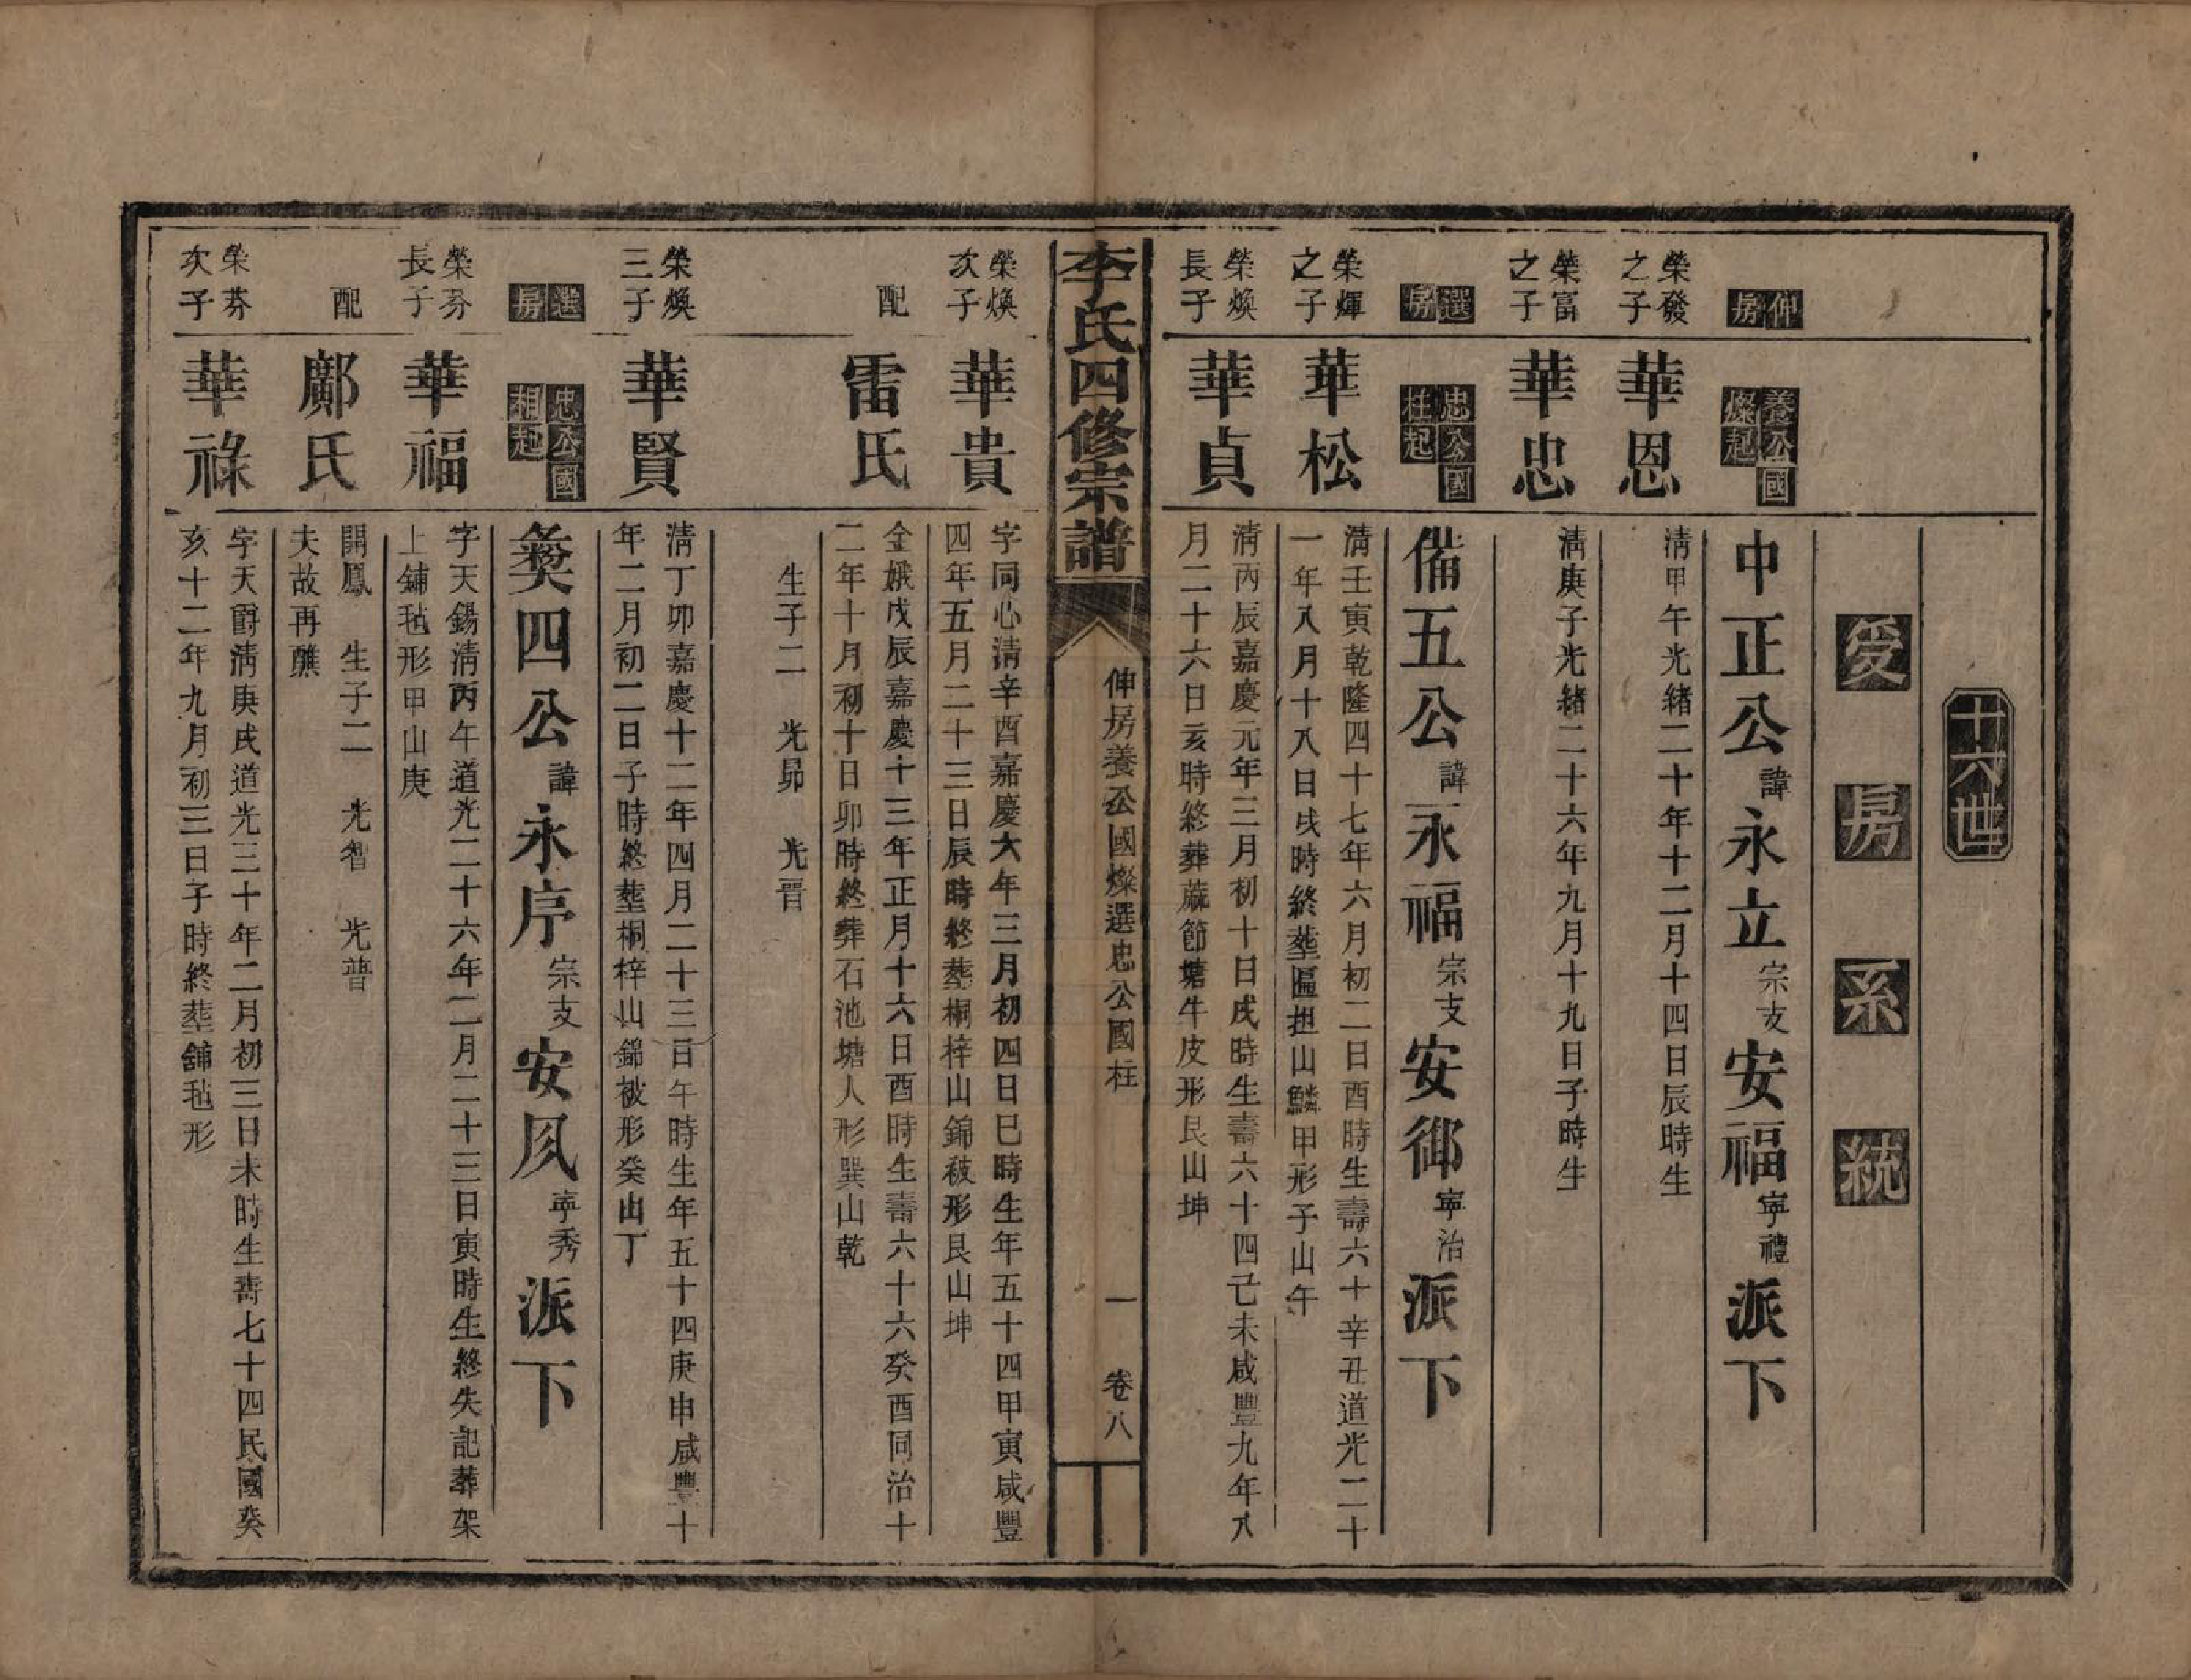 十六世
爰房系統
伸房
養公國
燦起
中正公諱永立宗支安福寧禮派下
榮發
之子
華恩
清甲午光緒二十年十二月十四日辰時生
榮富
之子
華忠
清庚子光緒二十六年九月十九日子時生
選房
忠公國
柱起
備五公諱永福宗支安御寧治派下
榮輝
之子
華松
清壬寅乾隆四十七年六月初二日酉時生壽六十辛丑道光二十
一年八月十八日戌時終塟匾担山鱗甲形子山午
榮煥
長子
華貞
清丙辰嘉慶元年三月初十日戌時生壽六十四己未咸豐九年八
月二十六日亥時終葬蔴節塘牛皮形艮山坤
李氏四修宗譜
伸房養公國燦選忠公國柱
一
卷八
榮煥
次子
華貴
字同心清辛酉嘉慶六年三月初四日巳時生年五十四甲寅咸豐
四年五月二十三日辰時終塟桐梓山錦被形艮山坤
配
雷氏
金娥戊辰嘉慶十三年正月十六日酉時生壽六十六癸酉同治十
二年十月初十日卯時終葬石池塘人形巽山乾
生子二　光昴　光晋
榮煥
三子
華賢
清丁卯嘉慶十二年四月二十三日午時生年五十四庚申咸豐十
年二月初二日子時終塟桐梓山錦被形癸山丁
選房
忠公國
相起
彜四公諱永序宗支安凨寧秀派下
榮芬
長子
華福
字天錫清丙午道光二十六年二月二十三日寅時生終失記葬架
上鋪毡形甲山庚
配
鄺氏
開鳳　生子二　光智　光普
夫故再醮
榮芬
次子
華祿
字天爵清庚戌道光三十年二月初三日未時生壽七十四民國癸
亥十二年九月初三日子時終塟舖毡形